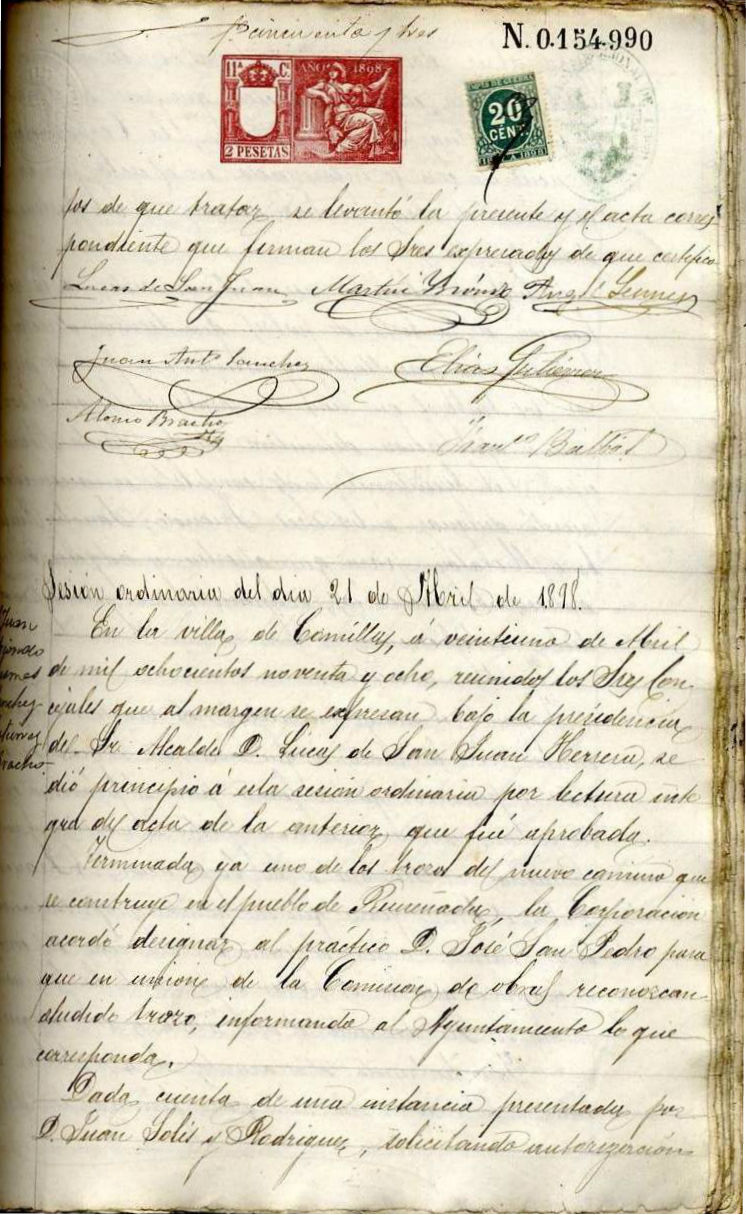 cincuenta y tres
N. 0.154.990
11ª C.
AÑO 1898
2 PESETAS
20
CENT
1897 A 1898
tos de que tratar se levantó la presente y el acta corres
pondiente que firman los Sres expresados de que certifico
Lucas de San Juan Martin
Juan Antº Sanchez Elias Gutierrez
Alonso Bracho
Sesión ordinaria del dia 21 de Abril de 1898.
En la villa de Comillas, á veintiuno de Abril
de mil ochocientos noventa y ocho, reunidos los Sres Con
cejales que al margen se expresan bajo la presidencia
del Sr. Alcalde D. Lucas de San Juan Herrera, se
dió principio á esta sesión ordinaria por lectura inte
gra del acta de la anterior que fué aprobada.
Terminada ya uno de los trozos del nuevo camino que
se construye en el pueblo de Ruiseñada, la Corporación
acordó designar al práctico D. José San Pedro para
que en unión de la Comision de obras reconozcan
aludido trozo, informando al Ayuntamiento lo que
corresponda.
Dada cuenta de una instancia presentada por
D. Juan Solis y Rodriguez, solicitando autorización
Juan